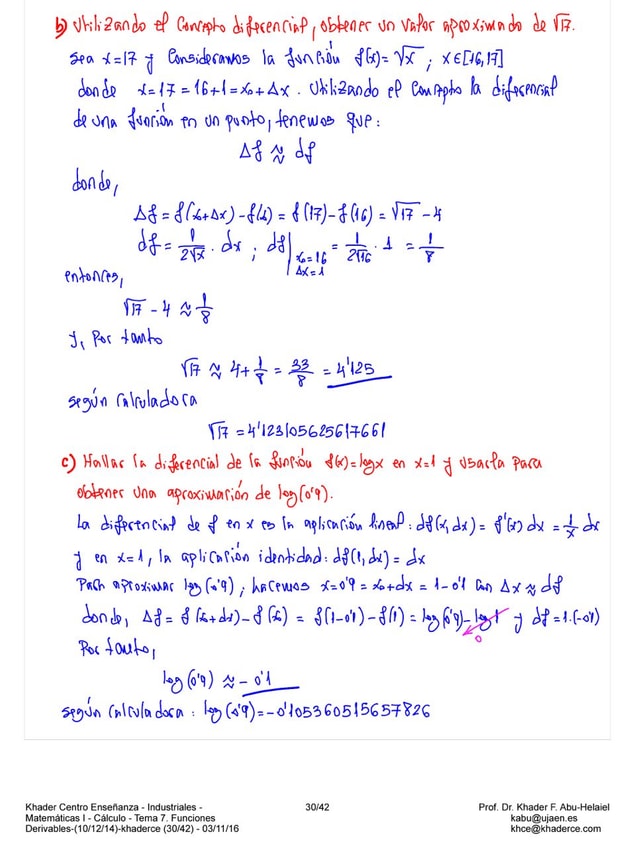 b) Utilizando el concepto diferencial, obtener un valor aproximado de √17.
Sea x=17 y consideramos la función f(x)=√x ; x∈[16,17]
donde x=17=16+1=x₀+Δx. Utilizando el concepto la diferencial
de una función en un punto, tenemos que:
Δf ≈ df
donde,
Δf = f(x₀+Δx)-f(x₀) = f(17)-f(16) = √17 - 4
df = 1/(2√x) · dx ; df|x₀=16 Δx=1 = 1/(2√16) · 1 = 1/8
entonces,
√17 - 4 ≈ 1/8
y, por tanto
√17 ≈ 4+1/8 = 33/8 = 4'125
según calculadora
√17 = 4'12310562561766
c) Hallar la diferencial de la función f(x)=log x en x=1 y usarla para
obtener una aproximación de log(0'9).
La diferencial de f en x es la aplicación lineal: df(x,dx) = f'(x) dx = 1/x dx
y en x=1, la aplicación identidad: df(1,dx) = dx
Para aproximar log(0'9), hacemos x=0'9=x₀+dx=1-0'1 con Δx≈df
donde, Δf = f(x₀+dx)-f(x₀) = f(1-0'1)-f(1) = log(0'9)-log 1 y df=1·(-0'1)
0
Por tanto,
log(0'9) ≈ -0'1
según calculadora: log(0'9)=-0'105360515657826
Khader Centro Enseñanza - Industriales -
Matemáticas I - Cálculo - Tema 7. Funciones
Derivables-(10/12/14)-khaderce (30/42) - 03/11/16
30/42
Prof. Dr. Khader F. Abu-Helaiel
kabu@ujaen.es
khce@khaderce.com